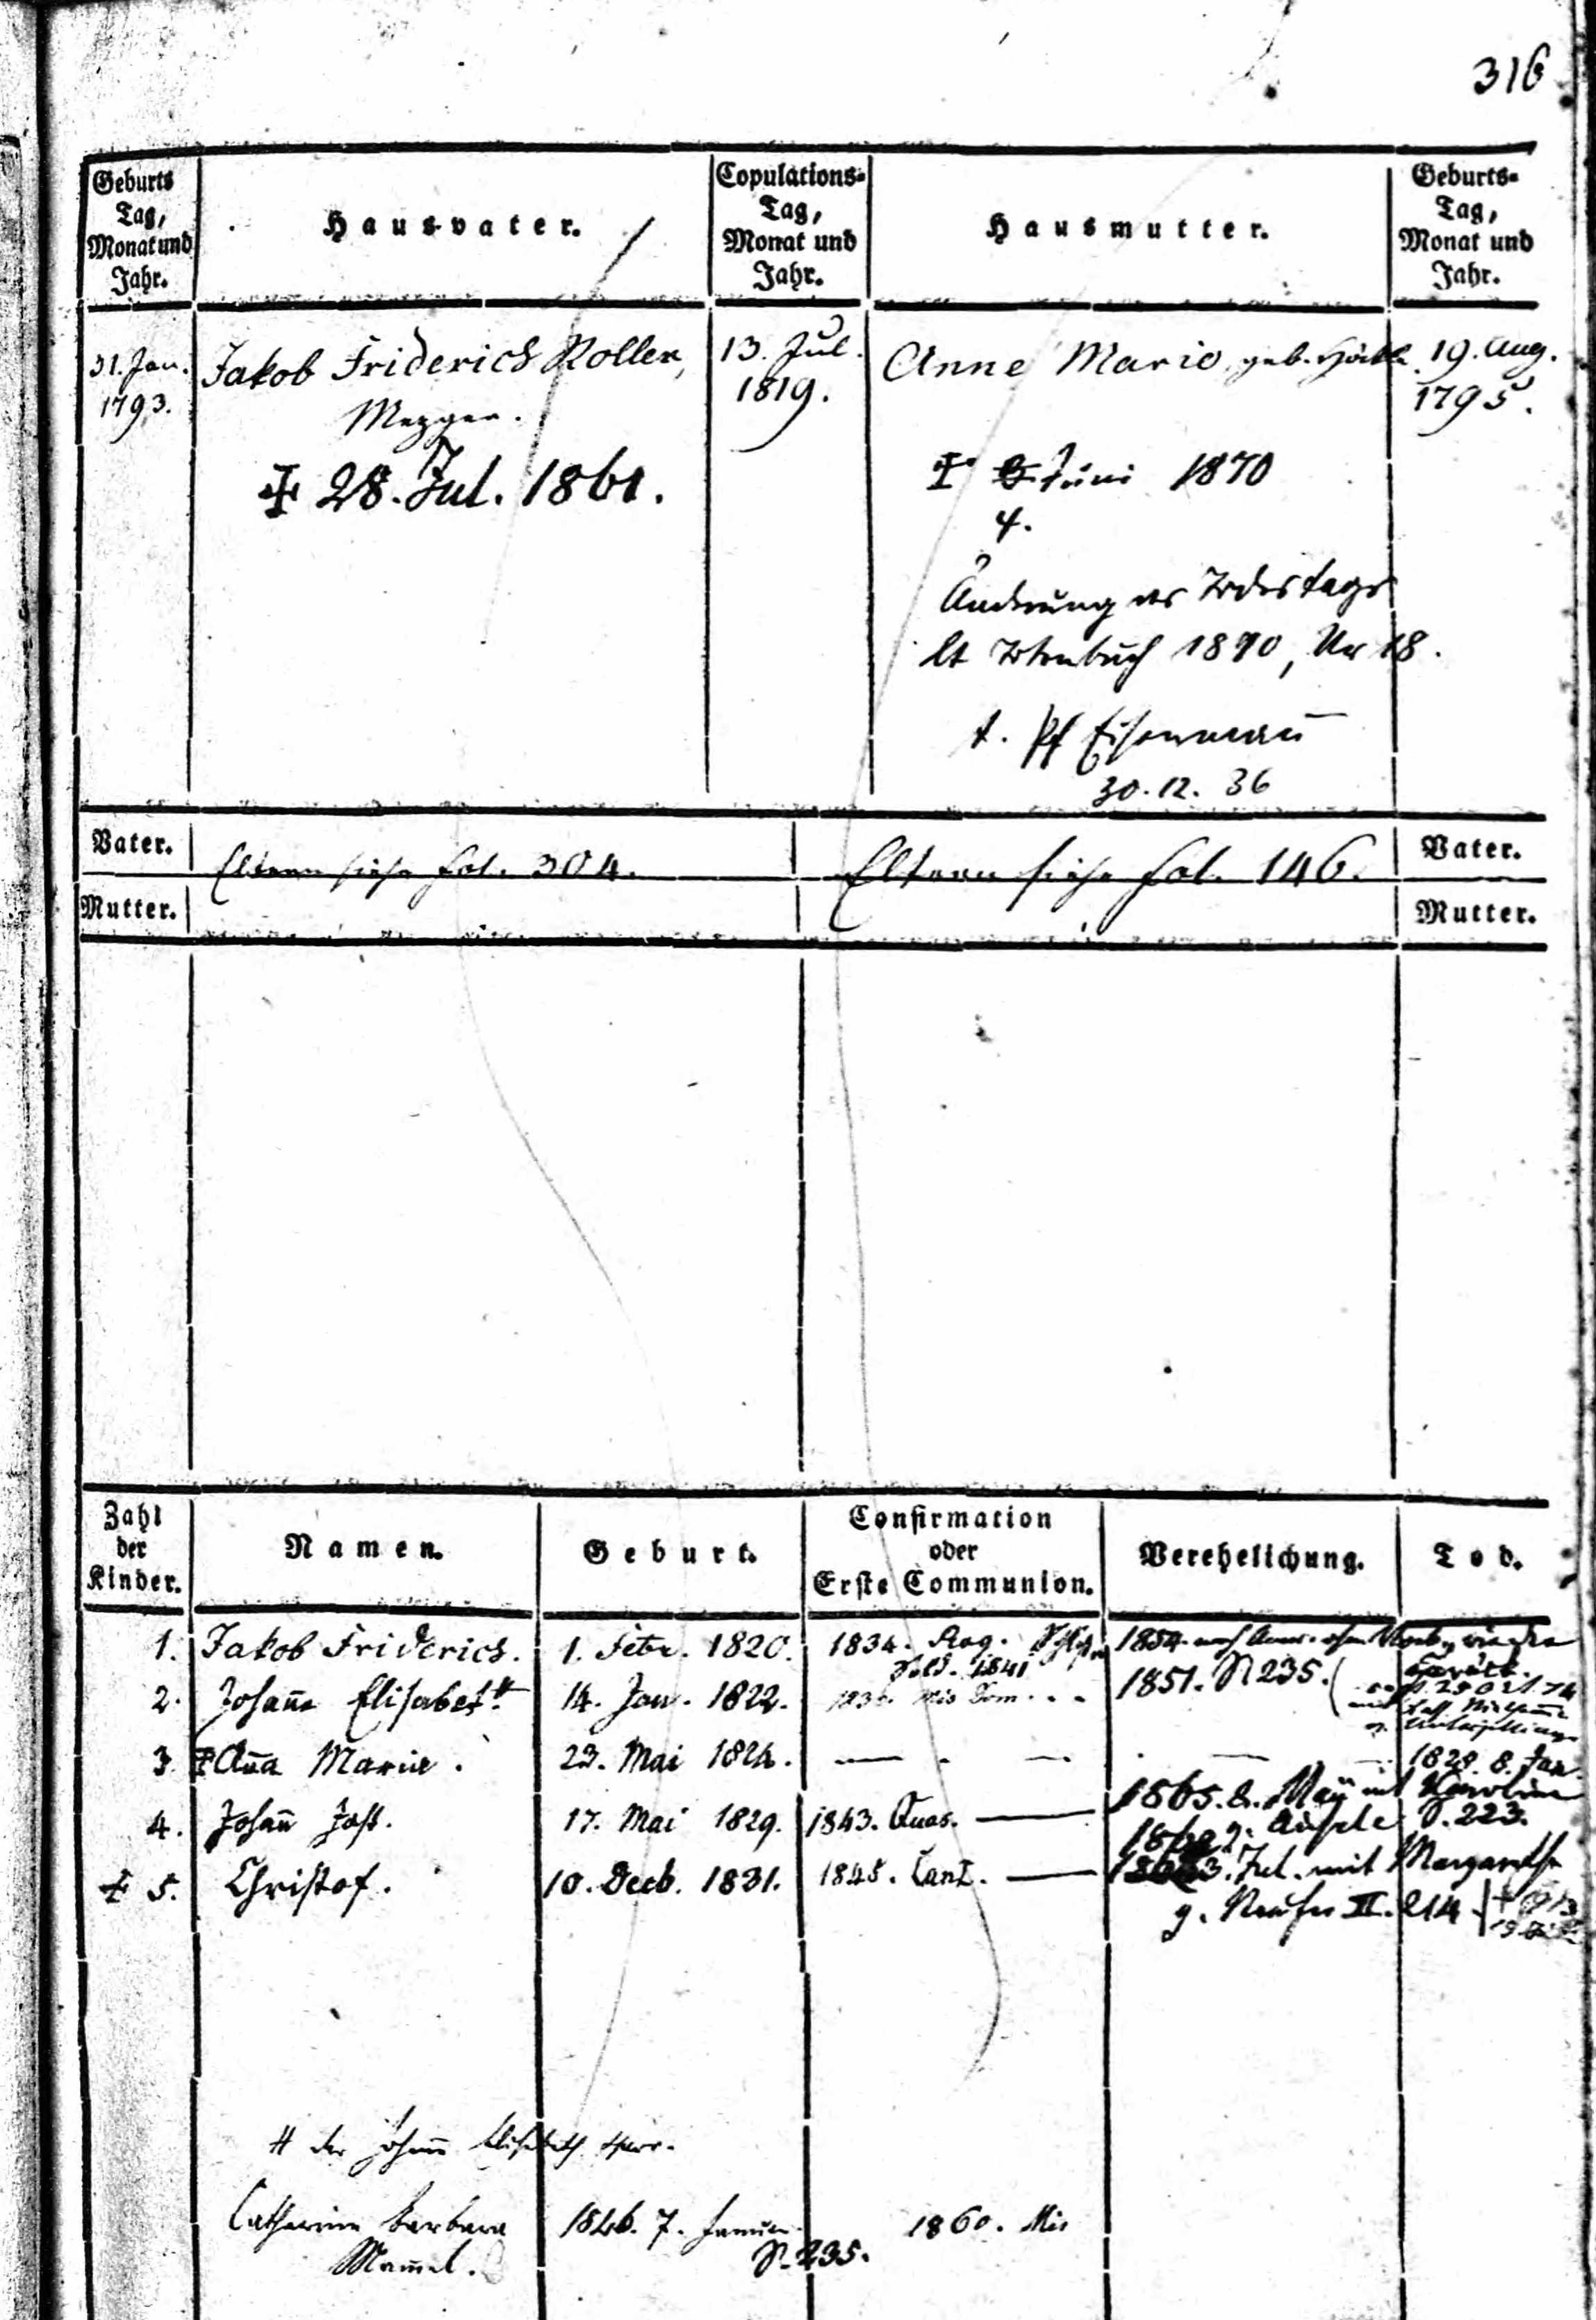 316
Geburts Tag, Monat und Jahr.
Hausvater.
Copulations- Tag, Monat und Jahr.
Hausmutter.
Geburts- Tag, Monat und Jahr.
31. Jan. 1793.
Jakob Friderich Roller,
Mezger.
+ 28. Jul. 1861.
13. Jul. 1819.
Anne Marie, geb.
19. Aug. 1795.
+ Juni 1870
4.
Änderung des Todestags
lt Totenbuch 1870, Nr 18.
t. Pf Eisenmann
30.12.36
Vater.
Mutter.
Eltern siehe fol. 304.
Eltern siehe fol. 146.
Vater.
Mutter.
Zahl der Kinder.
Namen.
Geburt.
Confirmation oder Erste Communion.
Verehelichung.
Tod.
1. Jakob Friderich. 1. Febr. 1820. 1834. Rog. 1854. nach Amer. ohne
1841
2. Johanna Elisabet # 14. Jan. 1822. Mis Dom. 1851. S. 235.
3. + Anna Maria. 23. Mai 1824. — — — 1829. 8. Jan.
4. Johann Jost. 17. Mai 1829. 1843. Quas. — 1865. 2. Mai mit Karolina
g. S. 223.
+ 5. Christof. 10. Decb. 1831. 1845. Cant. — 3. Jul. mit Margareth
g. II. 214.
# der Johanna Elisabeth
Catharina Barbara 1846. 7. Januar 1860. Mis
Mammel. S. 235.